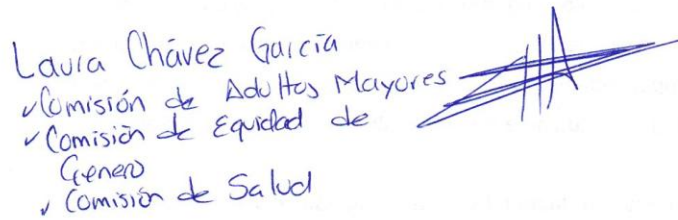 Laura Chávez García
✓Comisión de Adultos Mayores
✓Comisión de Equidad de
Genero
✓Comisión de Salud